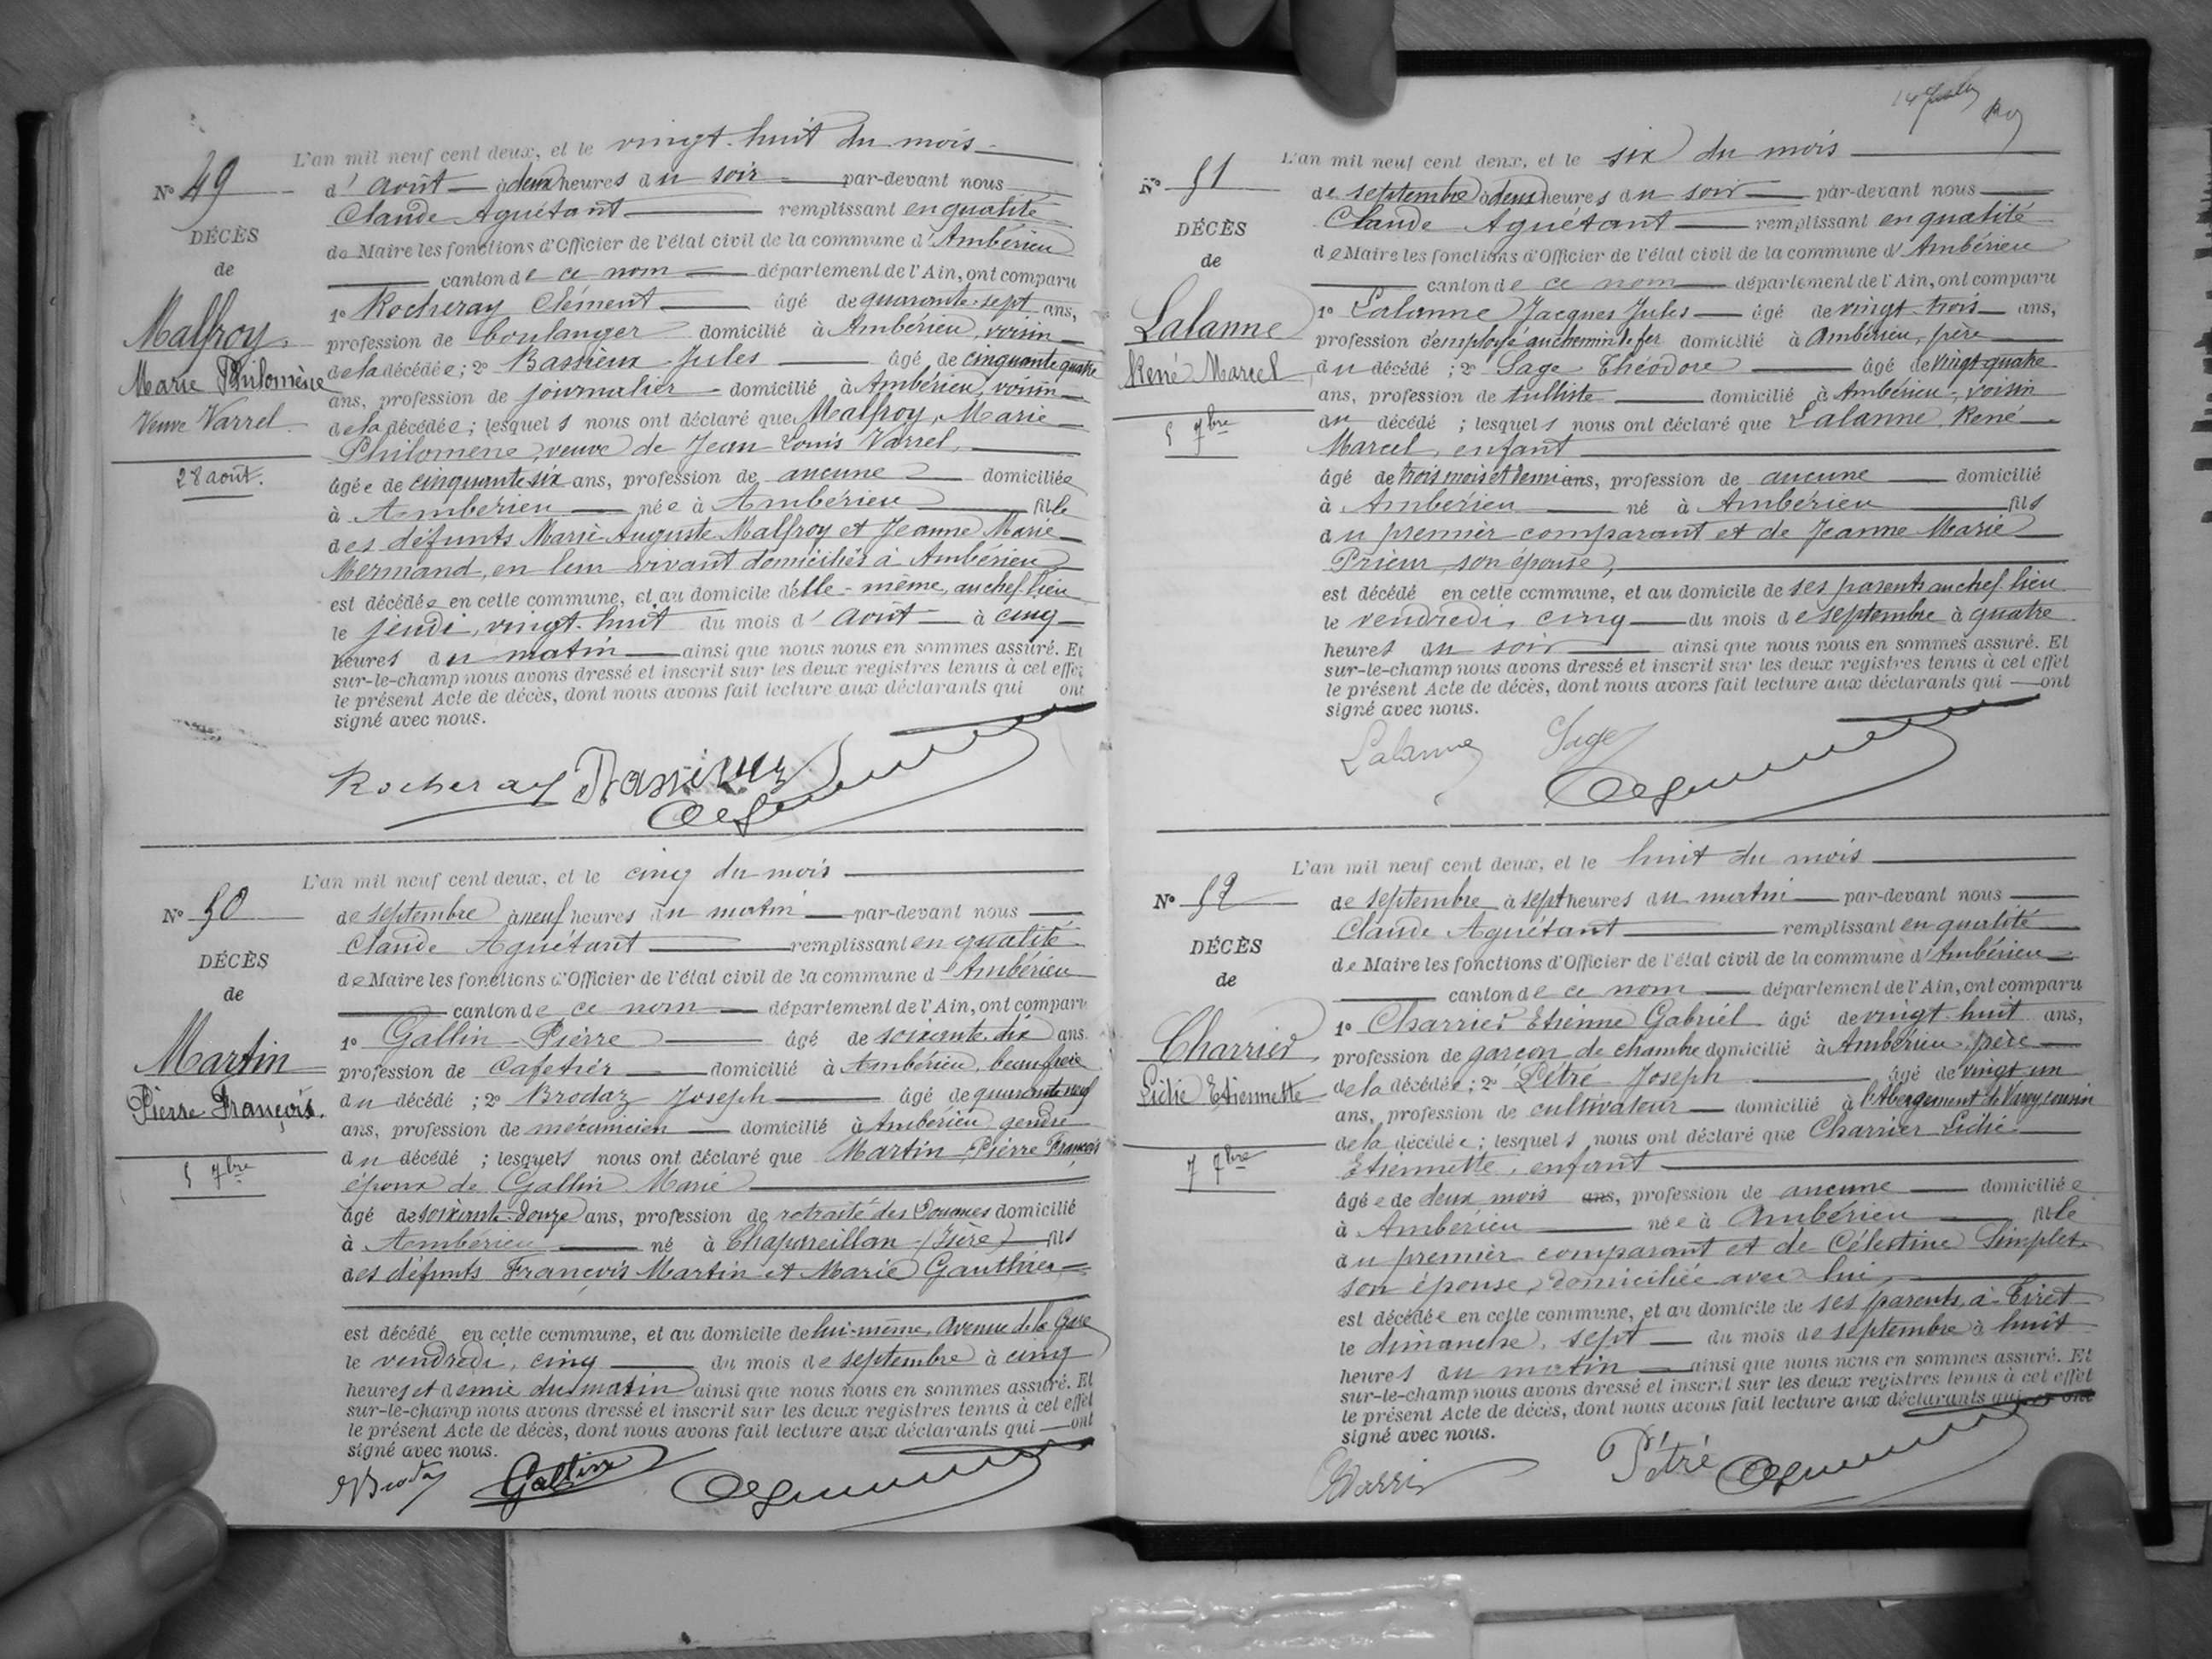 L'an mil neuf cent deux, et le vingt-huit du mois
N° 49
d'août à deux heures du soir par-devant nous
Claude Aguétant remplissant en qualité
DÉCÈS
de Maire les fonctions d'Officier de l'état civil de la commune d'Ambérieu
de
canton de ce nom département de l'Ain, ont comparu
1° Rocheray Clément âgé de quarante-sept ans,
Malfroy
profession de boulanger domicilié à Ambérieu, voisin
Marie Philomène
de la décédée ; 2° Bassieux Jules âgé de cinquante quatre
ans, profession de journalier domicilié à Ambérieu, voisin
Veuve Varrel
de la décédée ; lesquels nous ont déclaré que Malfroy, Marie
Philomène, veuve de Jean Louis Varrel,
28 août.
âgée de cinquante-six ans, profession de aucune domiciliée
à Ambérieu née à Ambérieu fille
des défunts Marie-Auguste Malfroy et Jeanne Marie
Mermand, en leur vivant domiciliés à Ambérieu
est décédée en cette commune, et au domicile d'elle-même, au chef lieu
le jeudi, vingt-huit du mois d'août à cinq
heures du matin ainsi que nous nous en sommes assuré. Et
sur-le-champ nous avons dressé et inscrit sur les deux registres tenus à cet effet
le présent Acte de décès, dont nous avons fait lecture aux déclarants qui ont
signé avec nous.
Rocheray Bassieux
L'an mil neuf cent deux, et le cinq du mois
N° 50
de septembre à neuf heures du matin par-devant nous
Claude Aguétant remplissant en qualité
DÉCÈS
de Maire les fonctions d'Officier de l'état civil de la commune d'Ambérieu
de
canton de ce nom département de l'Ain, ont comparu
1° Gallin Pierre âgé de soixante-dix ans
Martin
profession de Cafetier domicilié à Ambérieu, beau frère
Pierre François.
du décédé ; 2° Brodaz Joseph âgé de quarante neuf
ans, profession de mécanicien domicilié à Ambérieu gendre
du décédé ; lesquels nous ont déclaré que Martin Pierre François
5 7bre
époux de Gallin Marie
âgé de soixante-douze ans, profession de retraité des Douanes domicilié
à Ambérieu né à Chapareillan (Isère) fils
des défunts François Martin et Marie Gauthier
est décédé en cette commune, et au domicile de lui-même, Avenue de la Gare
le vendredi, cinq du mois de septembre à cinq
heures et demie du matin ainsi que nous nous en sommes assuré. Et
sur-le-champ nous avons dressé et inscrit sur les deux registres tenus à cet effet
le présent Acte de décès, dont nous avons fait lecture aux déclarants qui ont
signé avec nous.
Brodaz Gallin
L'an mil neuf cent deux, et le six du mois
N° 51
de septembre à deux heures du soir par-devant nous
Claude Aguétant remplissant en qualité
DÉCÈS
de Maire les fonctions d'Officier de l'état civil de la commune d'Ambérieu
de
canton de ce nom département de l'Ain, ont comparu
1° Lalanne Jacques Jules âgé de vingt-trois ans,
Lalanne
profession d'employé au chemin de fer domicilié à Ambérieu, père
René Marcel
du décédé ; 2° Sage Théodore âgé de vingt-quatre
ans, profession de tulliste domicilié à Ambérieu, voisin
du décédé ; lesquels nous ont déclaré que Lalanne René
5 7bre
Marcel, enfant
âgé de trois mois et demi ans, profession de aucune domicilié
à Ambérieu né à Ambérieu fils
du premier comparant et de Jeanne Marie
Prieur, son épouse,
est décédé en cette commune, et au domicile de ses parents au chef lieu
le vendredi, cinq du mois de septembre à quatre
heures du soir ainsi que nous nous en sommes assuré. Et
sur-le-champ nous avons dressé et inscrit sur les deux registres tenus à cet effet
le présent Acte de décès, dont nous avons fait lecture aux déclarants qui ont
signé avec nous.
Lalanne Sage
L'an mil neuf cent deux, et le huit du mois
N° 52
de septembre à sept heures du matin par-devant nous
Claude Aguétant remplissant en qualité
DÉCÈS
de Maire les fonctions d'Officier de l'état civil de la commune d'Ambérieu
de
canton de ce nom département de l'Ain, ont comparu
1° Charrier Etienne Gabriel âgé de vingt-huit ans,
Charrier
profession de garçon de chambre domicilié à Ambérieu père
Lidie Etiennette
de la décédée ; 2° Pétré Joseph âgé de vingt un
ans, profession de cultivateur domicilié à l'Abergement de Varey, cousin
de la décédée ; lesquels nous ont déclaré que Charrier Lidie
7 7bre
Etiennette, enfant
âgée de deux mois ans, profession de aucune domiciliée
à Ambérieu née à Ambérieu fille
du premier comparant et de Célestine Simplet
son épouse, domiciliée avec lui,
est décédée en cette commune, et au domicile de ses parents, à Tiret
le dimanche, sept du mois de septembre à huit
heures du matin ainsi que nous nous en sommes assuré. Et
sur-le-champ nous avons dressé et inscrit sur les deux registres tenus à cet effet
le présent Acte de décès, dont nous avons fait lecture aux déclarants qui ont
signé avec nous.
Charrier Pétré